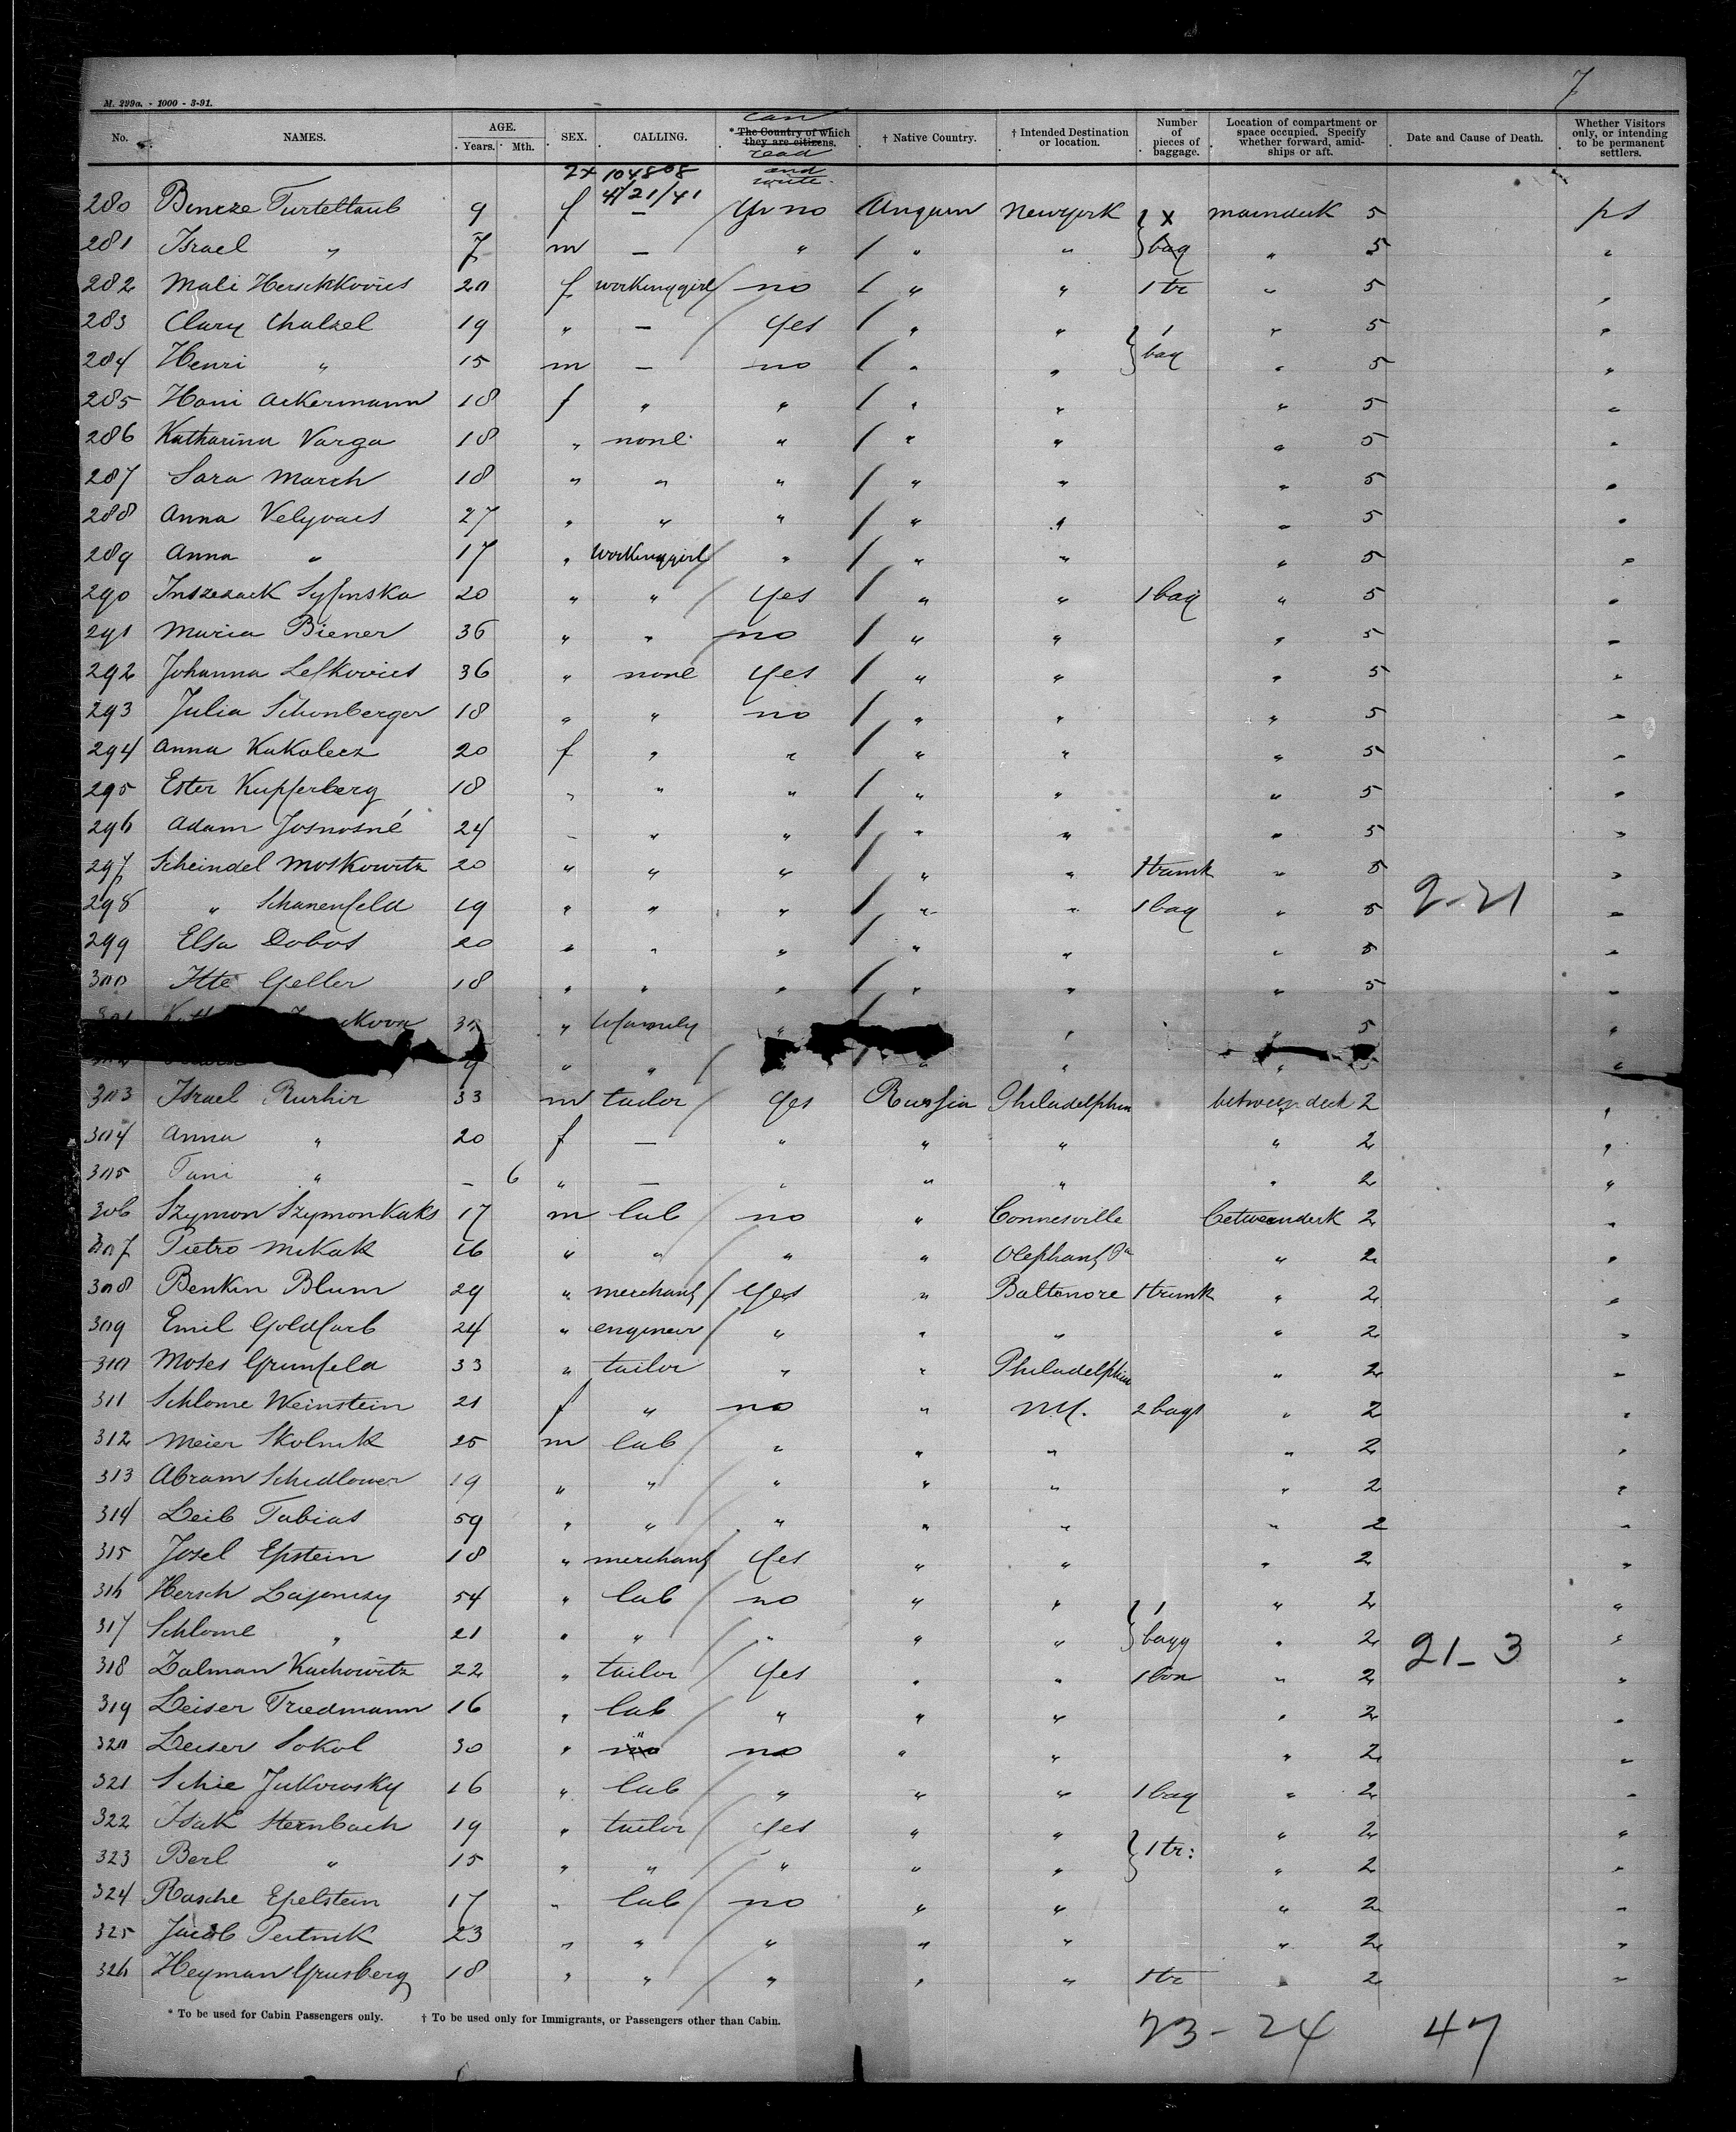 7
M. 299a. - 1000 - 3-91.
No. NAMES. AGE. Years. Mth. SEX. CALLING. * The Country of which they are citizens. can read and write † Native Country. † Intended Destination or location. Number of pieces of baggage. Location of compartment or space occupied. Specify whether forward, amidships or aft. Date and Cause of Death. Whether Visitors only, or intending to be permanent settlers.
2x 104808
4/21/41
280 Bincze Turteltaub 9 f — no Ungarn Newyork X maindeck 5 ps
281 Israel " 7 m — " " " bag " 5 "
282 Mali Herschkovics 20 f workinggirl no " " 1 tr " 5 "
283 Clary Chalzel 19 " — yes " " 1 " 5 "
284 Henri " 15 m — no " " bag " 5 "
285 Hani Ackermann 18 f " " " " " 5 "
286 Katharina Varga 18 " none " " " " 5 "
287 Sara March 18 " " " " " " 5 "
288 Anna Velyvacs 27 " " " " " " 5 "
289 Anna " 17 " workinggirl " " " " 5 "
290 Sylinska 20 " " yes " " 1 bag " 5 "
291 Maria Biener 36 " " no " " " 5 "
292 Johanna Lefkovics 36 " none yes " " " 5 "
293 Julia Schonberger 18 " " no " " " 5 "
294 Anna Kukolecz 20 f " " " " " 5 "
295 Ester Kupferberg 18 " " " " " " 5 "
296 Adam Josnosné 24 " " " " " " 5 "
297 Scheindel Moskowitz 20 " " " " " 1 trunk " 5 "
298 " Schanenfeld 19 " " " " " 1 bag " 5 2-21 "
299 Elsa Dobos 20 " " " " " " 5 "
300 Itte Geller 18 " " " " " " 5 "
" Wfamily " " " 5 "
9 " " " " "
303 Israel Rurhir 33 m tailor yes Russia Philadelphia between deck 2 "
304 Anna " 20 f — " " " " 2 "
305 Tani " — 6 " — " " " " 2 "
306 Szymon Szymonkaks 17 m lab no " Connesville betweendeck 2 "
307 Pietro Mikak 16 " " " " Olephant Pa " 2 "
308 Benkin Blum 29 " merchant yes " Baltimore 1 trunk " 2 "
309 Emil Goldfarb 24 " engineer " " " " 2 "
310 Moses Grunfeld 33 " tailor " " Philadelphia " 2 "
311 Schlome Weinstein 21 f " no " NY. 2 bags " 2 "
312 Meier Skolnik 25 m lab " " " " 2 "
313 Abram Schedlower 19 " " " " " " 2 "
314 Leib Tabias 59 " " " " " " 2 "
315 Josel Epstein 18 " merchant yes " " " 2 "
316 Hersch Lajonczy 54 " lab no " " 1 " 2 "
317 Schlome " 21 " " " " " bagg " 2 "
21-3
318 Zalman Kuchowitz 22 " tailor yes " " 1 box " 2 "
319 Leiser Friedmann 16 " lab " " " " 2 "
320 Leiser Sokol 30 " " no " " " 2 "
321 Schie Jukowsky 16 " lab " " " 1 bag " 2 "
322 Isak Sternbach 19 " tailor yes " " 1 tr: " 2 "
323 Berl " 15 " " " " " " 2 "
324 Rasche Epelstein 17 " lab no " " " 2 "
325 Jacob Peitnik 23 " " " " " " 2 "
326 Heyman Grusberg 18 " " " " " 1 tr " 2 "
* To be used for Cabin Passengers only. † To be used only for Immigrants, or Passengers other than Cabin.
23 - 24 47